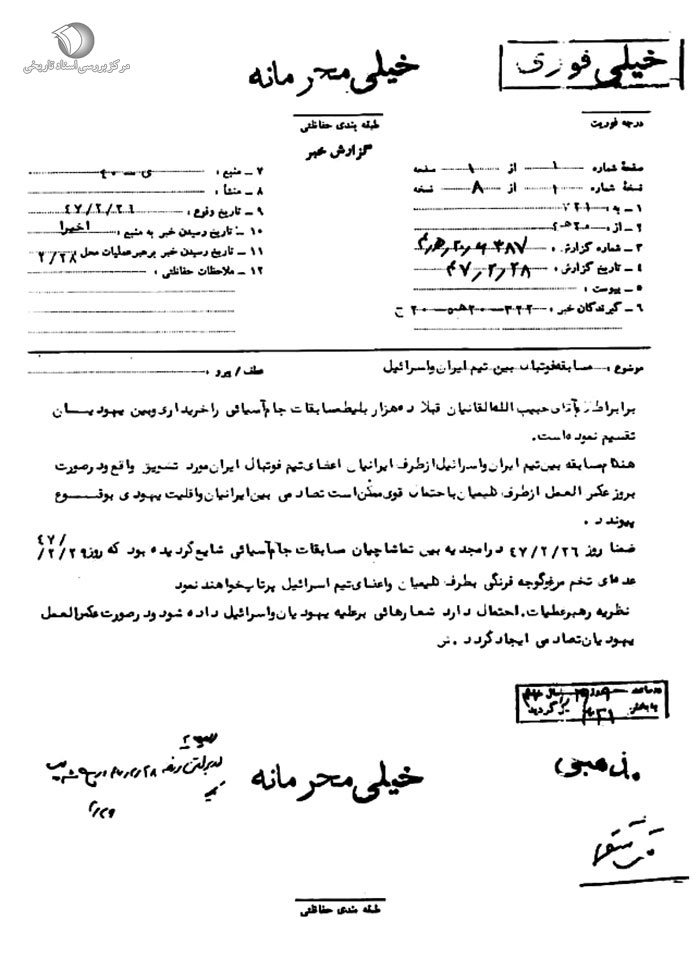 مرکز بررسی اسناد تاریخی
خیلی فوری
خیلی محرمانه
درجه فوریت
طبقه بندی حفاظتی
گزارش خبر
صفحهٔ شماره ۱ از ۱ صفحه
نسخهٔ شماره ۱ از ۸ نسخه
۱ ـ به :
۲ ـ از :
۳ ـ شماره گزارش :
۴ ـ تاریخ گزارش : ۴۷/۲/۲۸
۵ ـ پیوست :
۶ ـ گیرندگان خبر :
۷ ـ منبع :
۸ ـ منشأ :
۹ ـ تاریخ وقوع : ۴۷/۲/۲۶
۱۰ ـ تاریخ رسیدن خبر به منبع : اخیرا
۱۱ ـ تاریخ رسیدن خبر برهبر عملیات محل ۲/۲۸
۱۲ ـ ملاحظات حفاظتی :
موضوع : مسابقه فوتبال بین تیم ایران واسرائیل
عطف / پیرو :
برابر اظهار آقای حبیب الله القانیان قبلا ده هزار بلیط مسابقات جام آسیائی را خریداری وبین یهودیان
تقسیم نموده است.
هنگام مسابقه بین تیم ایران واسرائیل از طرف ایرانیان اعضای تیم فوتبال ایران مورد تشویق واقع ودرصورت
بروز عکس العمل از طرف کلیمیان با احتمال قوی ممکن است تصادمی بین ایرانیان واقلیت یهودی بوقوع
پیوندد .
ضمنا روز ۴۷/۲/۲۶ درامجدیه بین تماشاچیان مسابقات جام آسیائی شایع گردیده بود که روز ۴۷/۲/۲۹
عده‌ای تخم مرغ وگوجه فرنگی بطرف کلیمیان واعضای تیم اسرائیل پرتاب خواهند نمود
نظریه رهبر عملیات. احتمال دارد شعارهائی برعلیه یهودیان واسرائیل داده شود ودرصورت عکس العمل
یهودیان تصادمی ایجاد گردد .
خیلی محرمانه
طبقه بندی حفاظتی